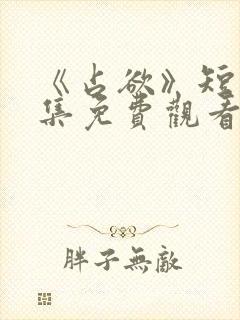 《占欲》短
集免費觀看
胖子無敵